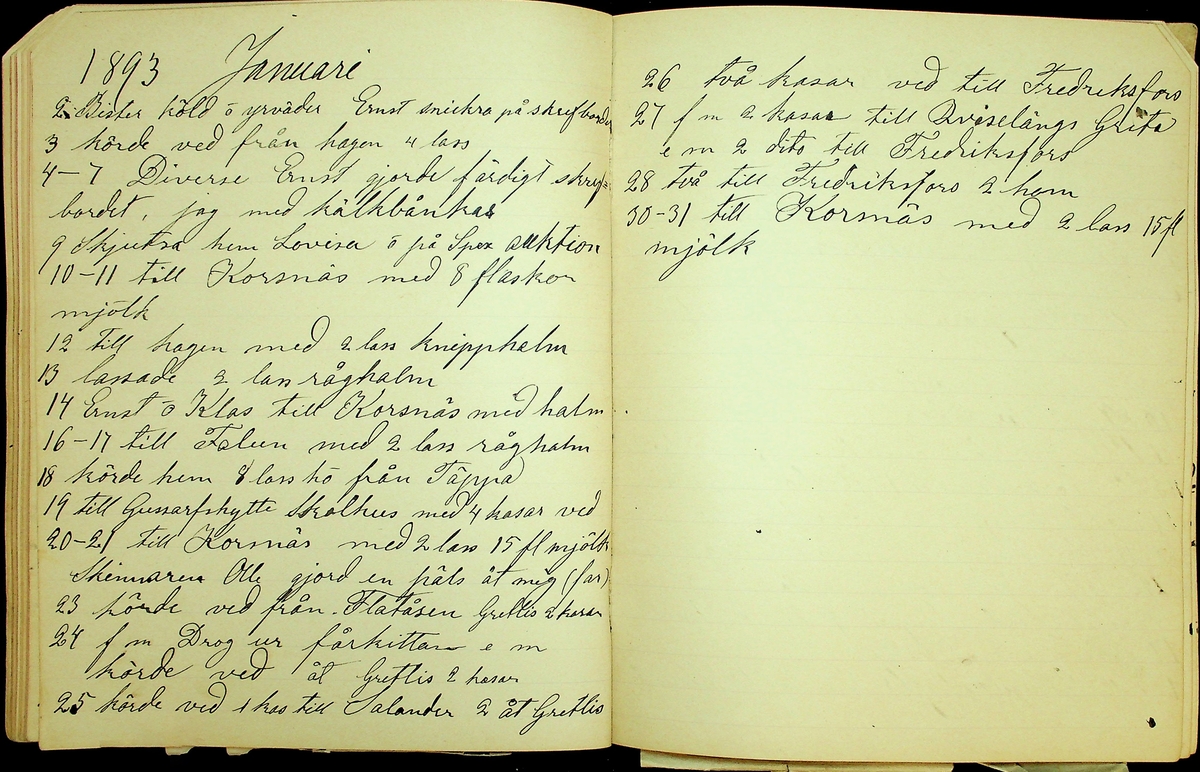 1893 Januari
2 Bister köld ō yrväder Ernst snickra på skrefborde
3 körde ved från hagen 4 lass
4-7 Diverse Ernst gjorde färdigt skref-
bordet, jag med kälkbånkas
9 Skjutsa hem Lovisa ō på Spex auktion
10-11 till Korsnäs med 8 flaskor
mjölk
12 till hagen med 2 lass knipphalm
13 lassade 2 lass råghalm
14 Ernst ō Klas till Korsnäs med halm
16-17 till Falun med 2 lass råghalm
18 körde hem 8 lass hö från Täppa
19 till Gussarfshytte Skolhus med 4 kasar ved
20-21 till Korsnäs med 2 lass 15 fl mjölk
Skinnaren Olle gjord en päls åt mig (far)
23 körde ved från Flatåsen Gretlis 2 kasar
24 f m Drog ur fårkittan e m
körde ved åt Gretlis 2 kasar
25 körde ved 1 kas till Salander 2 åt Gretlis
26 två kasar ved till Fredriksfors
27 f m 2 kasar till Greta
e m 2 dito till Fredriksfors
28 två till Fredriksfors 2 hem
30-31 till Korsnäs med 2 lass 15 fl
mjölk